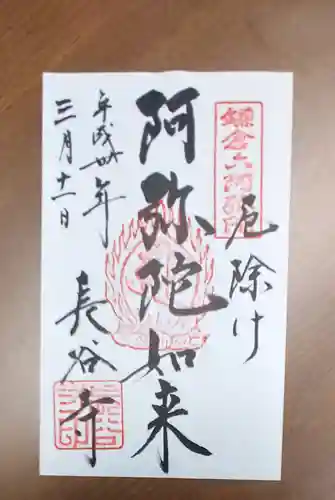 鎌倉六阿弥陀
厄除け
阿弥陀如来
長谷寺
平成卅年
三月十一日